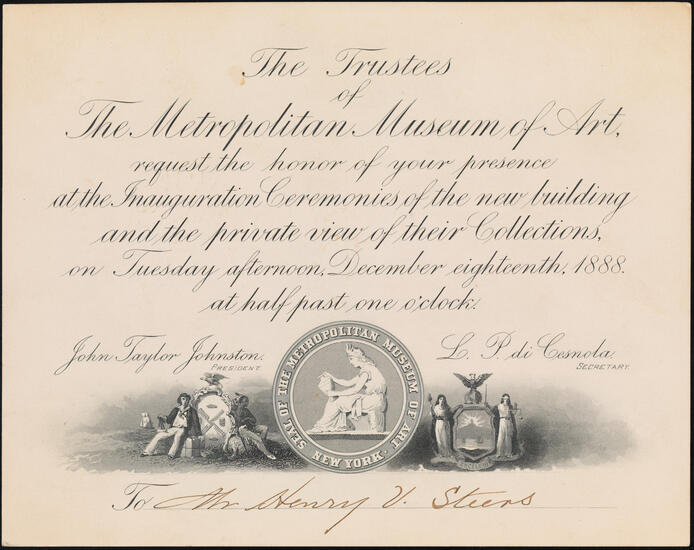 The Trustees
of
The Metropolitan Museum of Art,
request the honor of your presence
at the Inauguration Ceremonies of the new building
and the private view of their Collections,
on Tuesday afternoon, December eighteenth, 1888.
at half past one o'clock.
John Taylor Johnston.
PRESIDENT.
L. P. di Cesnola.
SECRETARY.
SEAL OF THE METROPOLITAN MUSEUM OF ART
NEW YORK
EXCELSIOR
To Mr Henry V. Steers